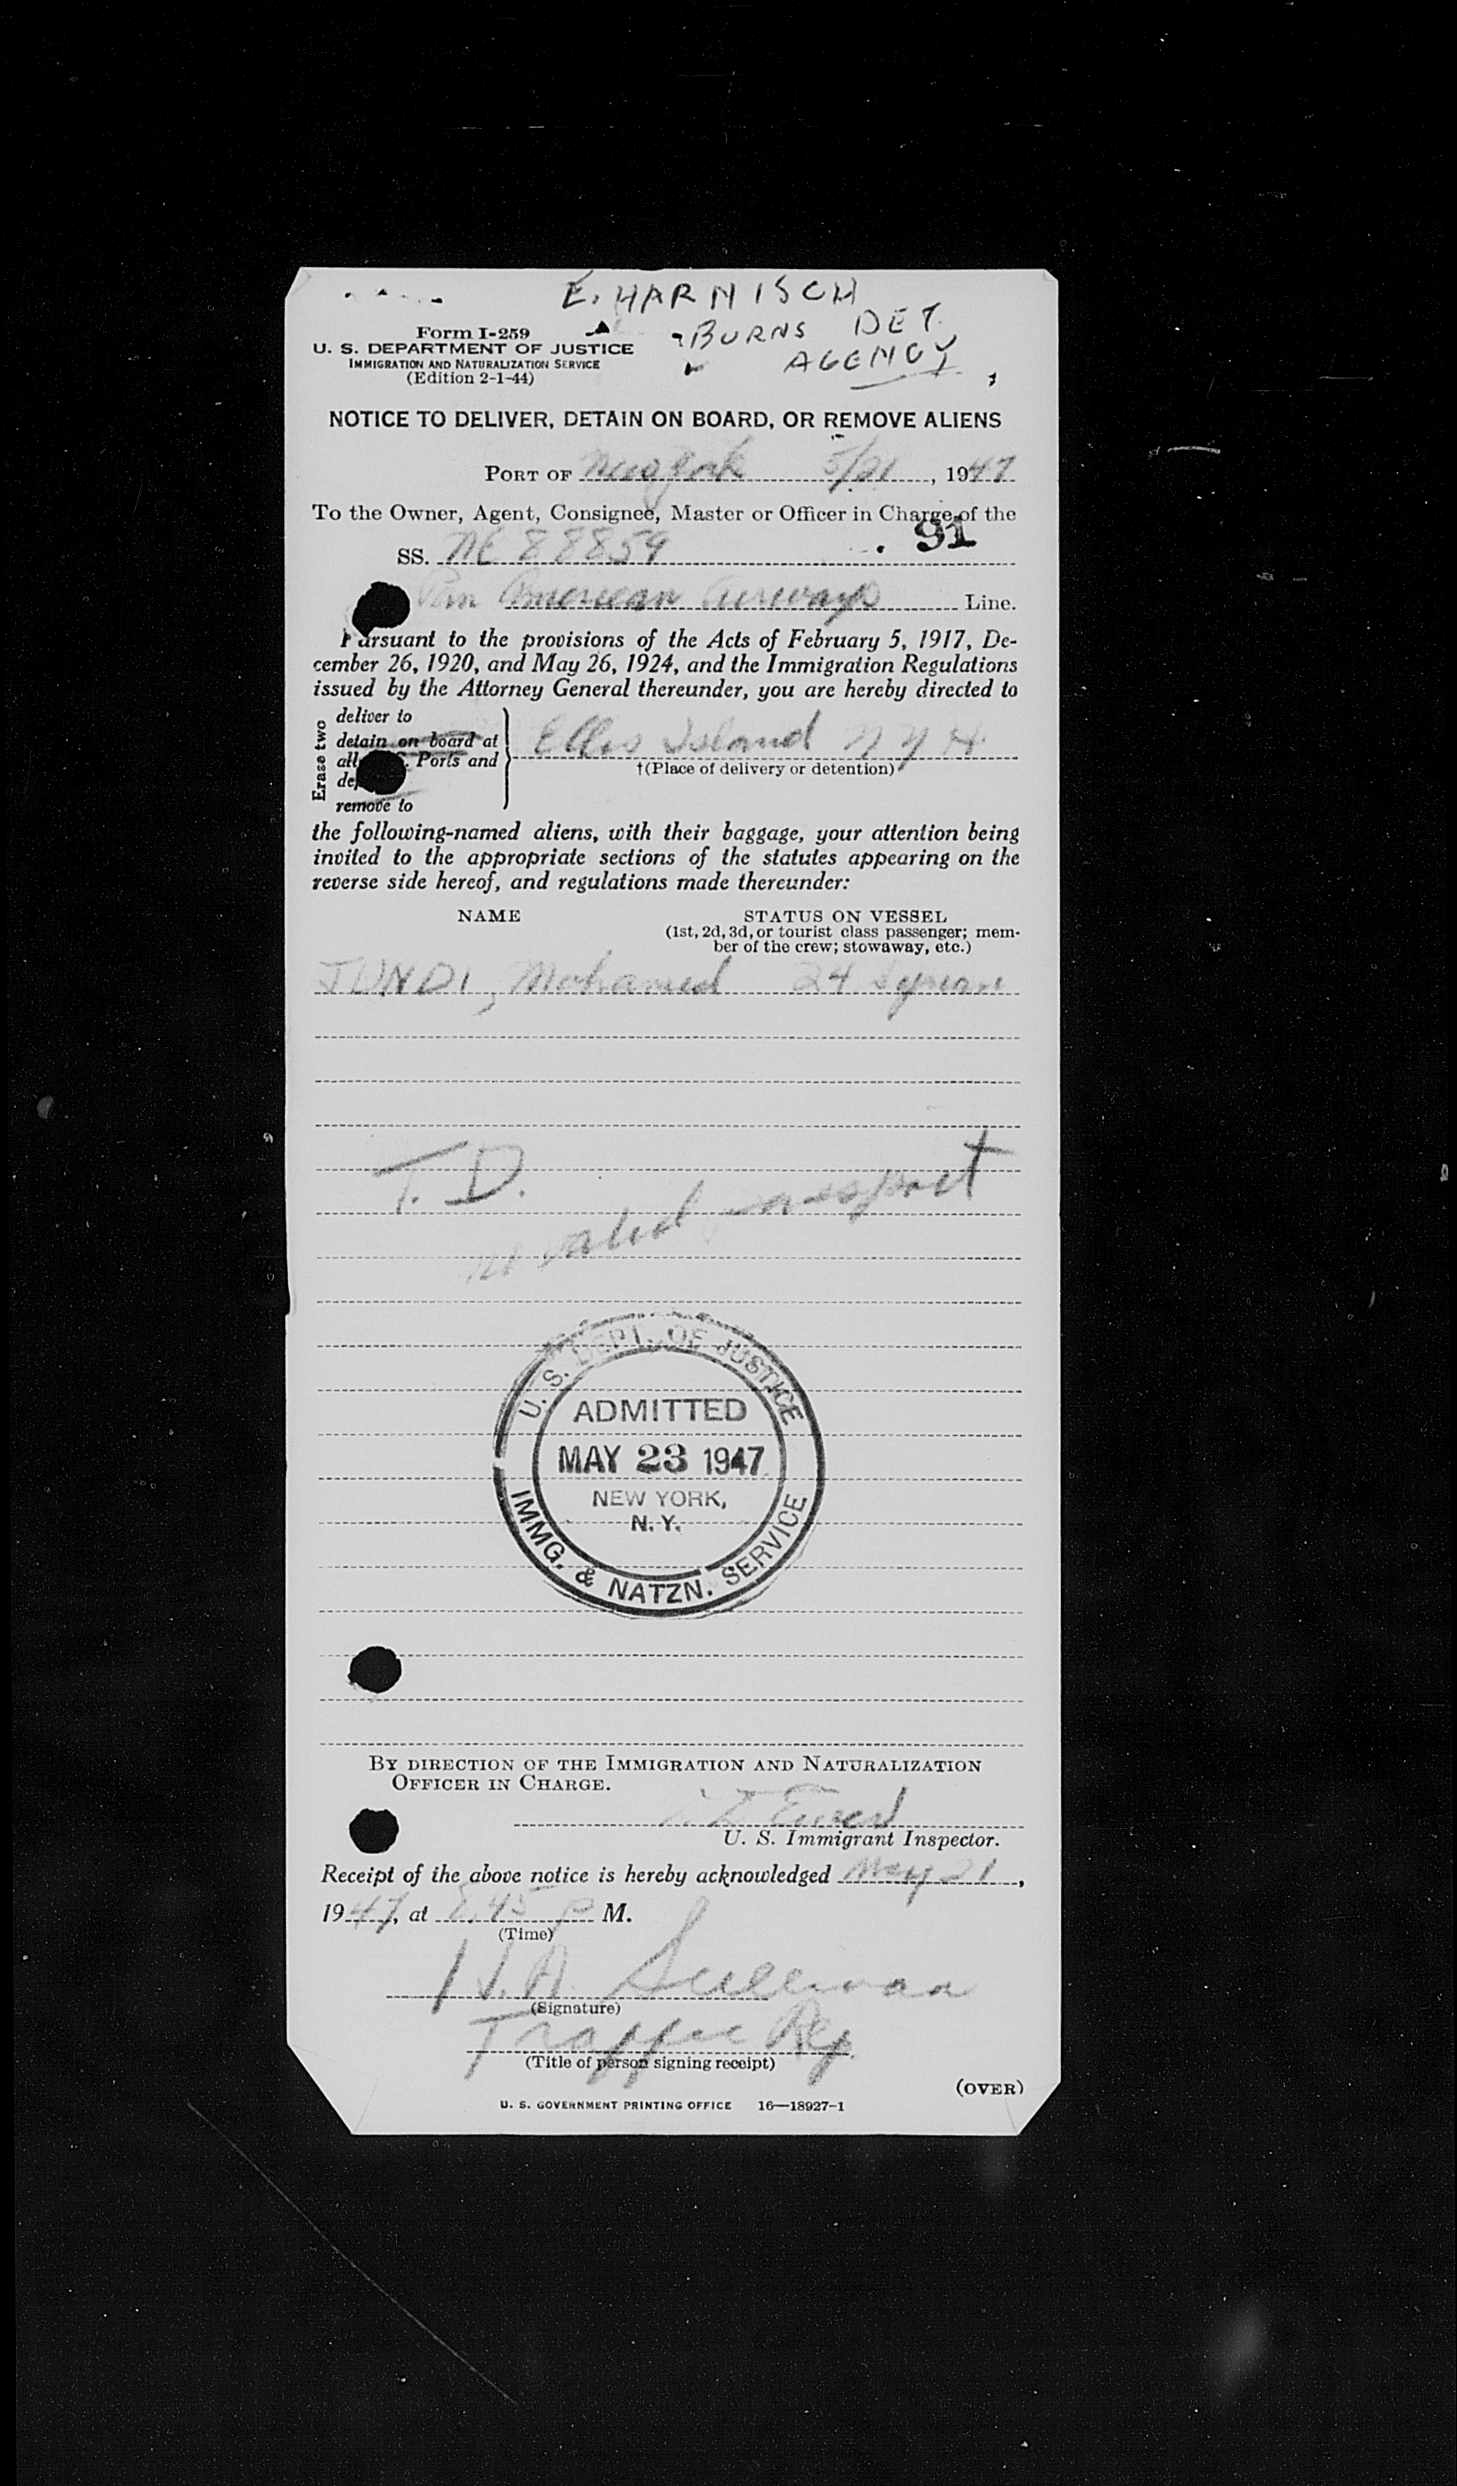 E. HARNISCH
BURNS DET.
AGENCY
Form I-259
U. S. DEPARTMENT OF JUSTICE
IMMIGRATION AND NATURALIZATION SERVICE
(Edition 2-1-44)
NOTICE TO DELIVER, DETAIN ON BOARD, OR REMOVE ALIENS
PORT OF New York 5/21, 1947
To the Owner, Agent, Consignee, Master or Officer in Charge of the
91
SS. NC 88859
Pan American Airways Line.
Pursuant to the provisions of the Acts of February 5, 1917, De-
cember 26, 1920, and May 26, 1924, and the Immigration Regulations
issued by the Attorney General thereunder, you are hereby directed to
Erase two
deliver to
detain on board at
all Ports and
remove to
Ellis Island N Y H.
†(Place of delivery or detention)
the following-named aliens, with their baggage, your attention being
invited to the appropriate sections of the statutes appearing on the
reverse side hereof, and regulations made thereunder:
NAME
STATUS ON VESSEL
(1st, 2d, 3d, or tourist class passenger; mem-
ber of the crew; stowaway, etc.)
JUNDI, Mohamed 24 Syrian
T. D.
valid passport
U. S. DEPT. OF JUSTICE
ADMITTED
MAY 23 1947
NEW YORK,
N. Y.
IMMG. & NATZN. SERVICE
BY DIRECTION OF THE IMMIGRATION AND NATURALIZATION
OFFICER IN CHARGE.
U. S. Immigrant Inspector.
Receipt of the above notice is hereby acknowledged May 21,
1947, at 8.45 P M.
(Time)
Sullivan
(Signature)
Traffic Rep.
(Title of person signing receipt)
(OVER)
U. S. GOVERNMENT PRINTING OFFICE 16—18927-1